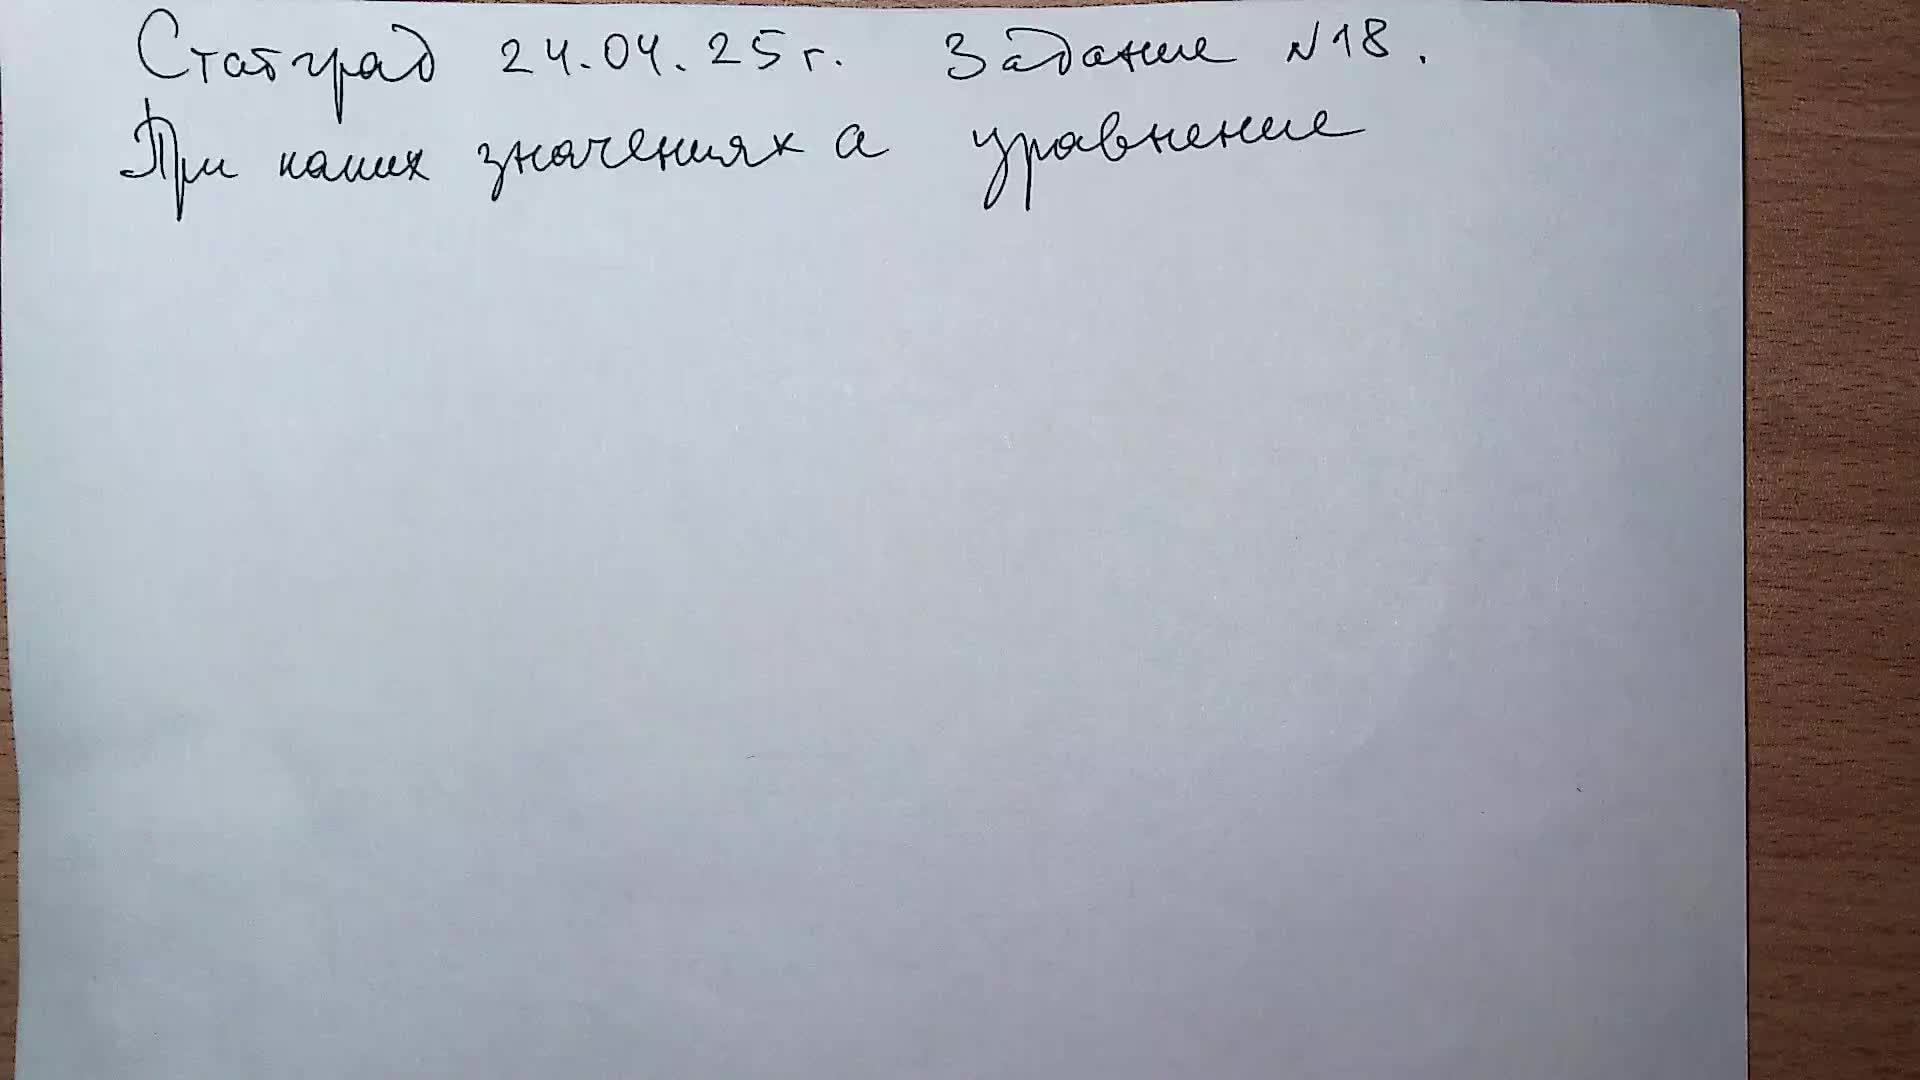 Статград 24.04.25г. Задание №18.
При каких значениях а уравнение